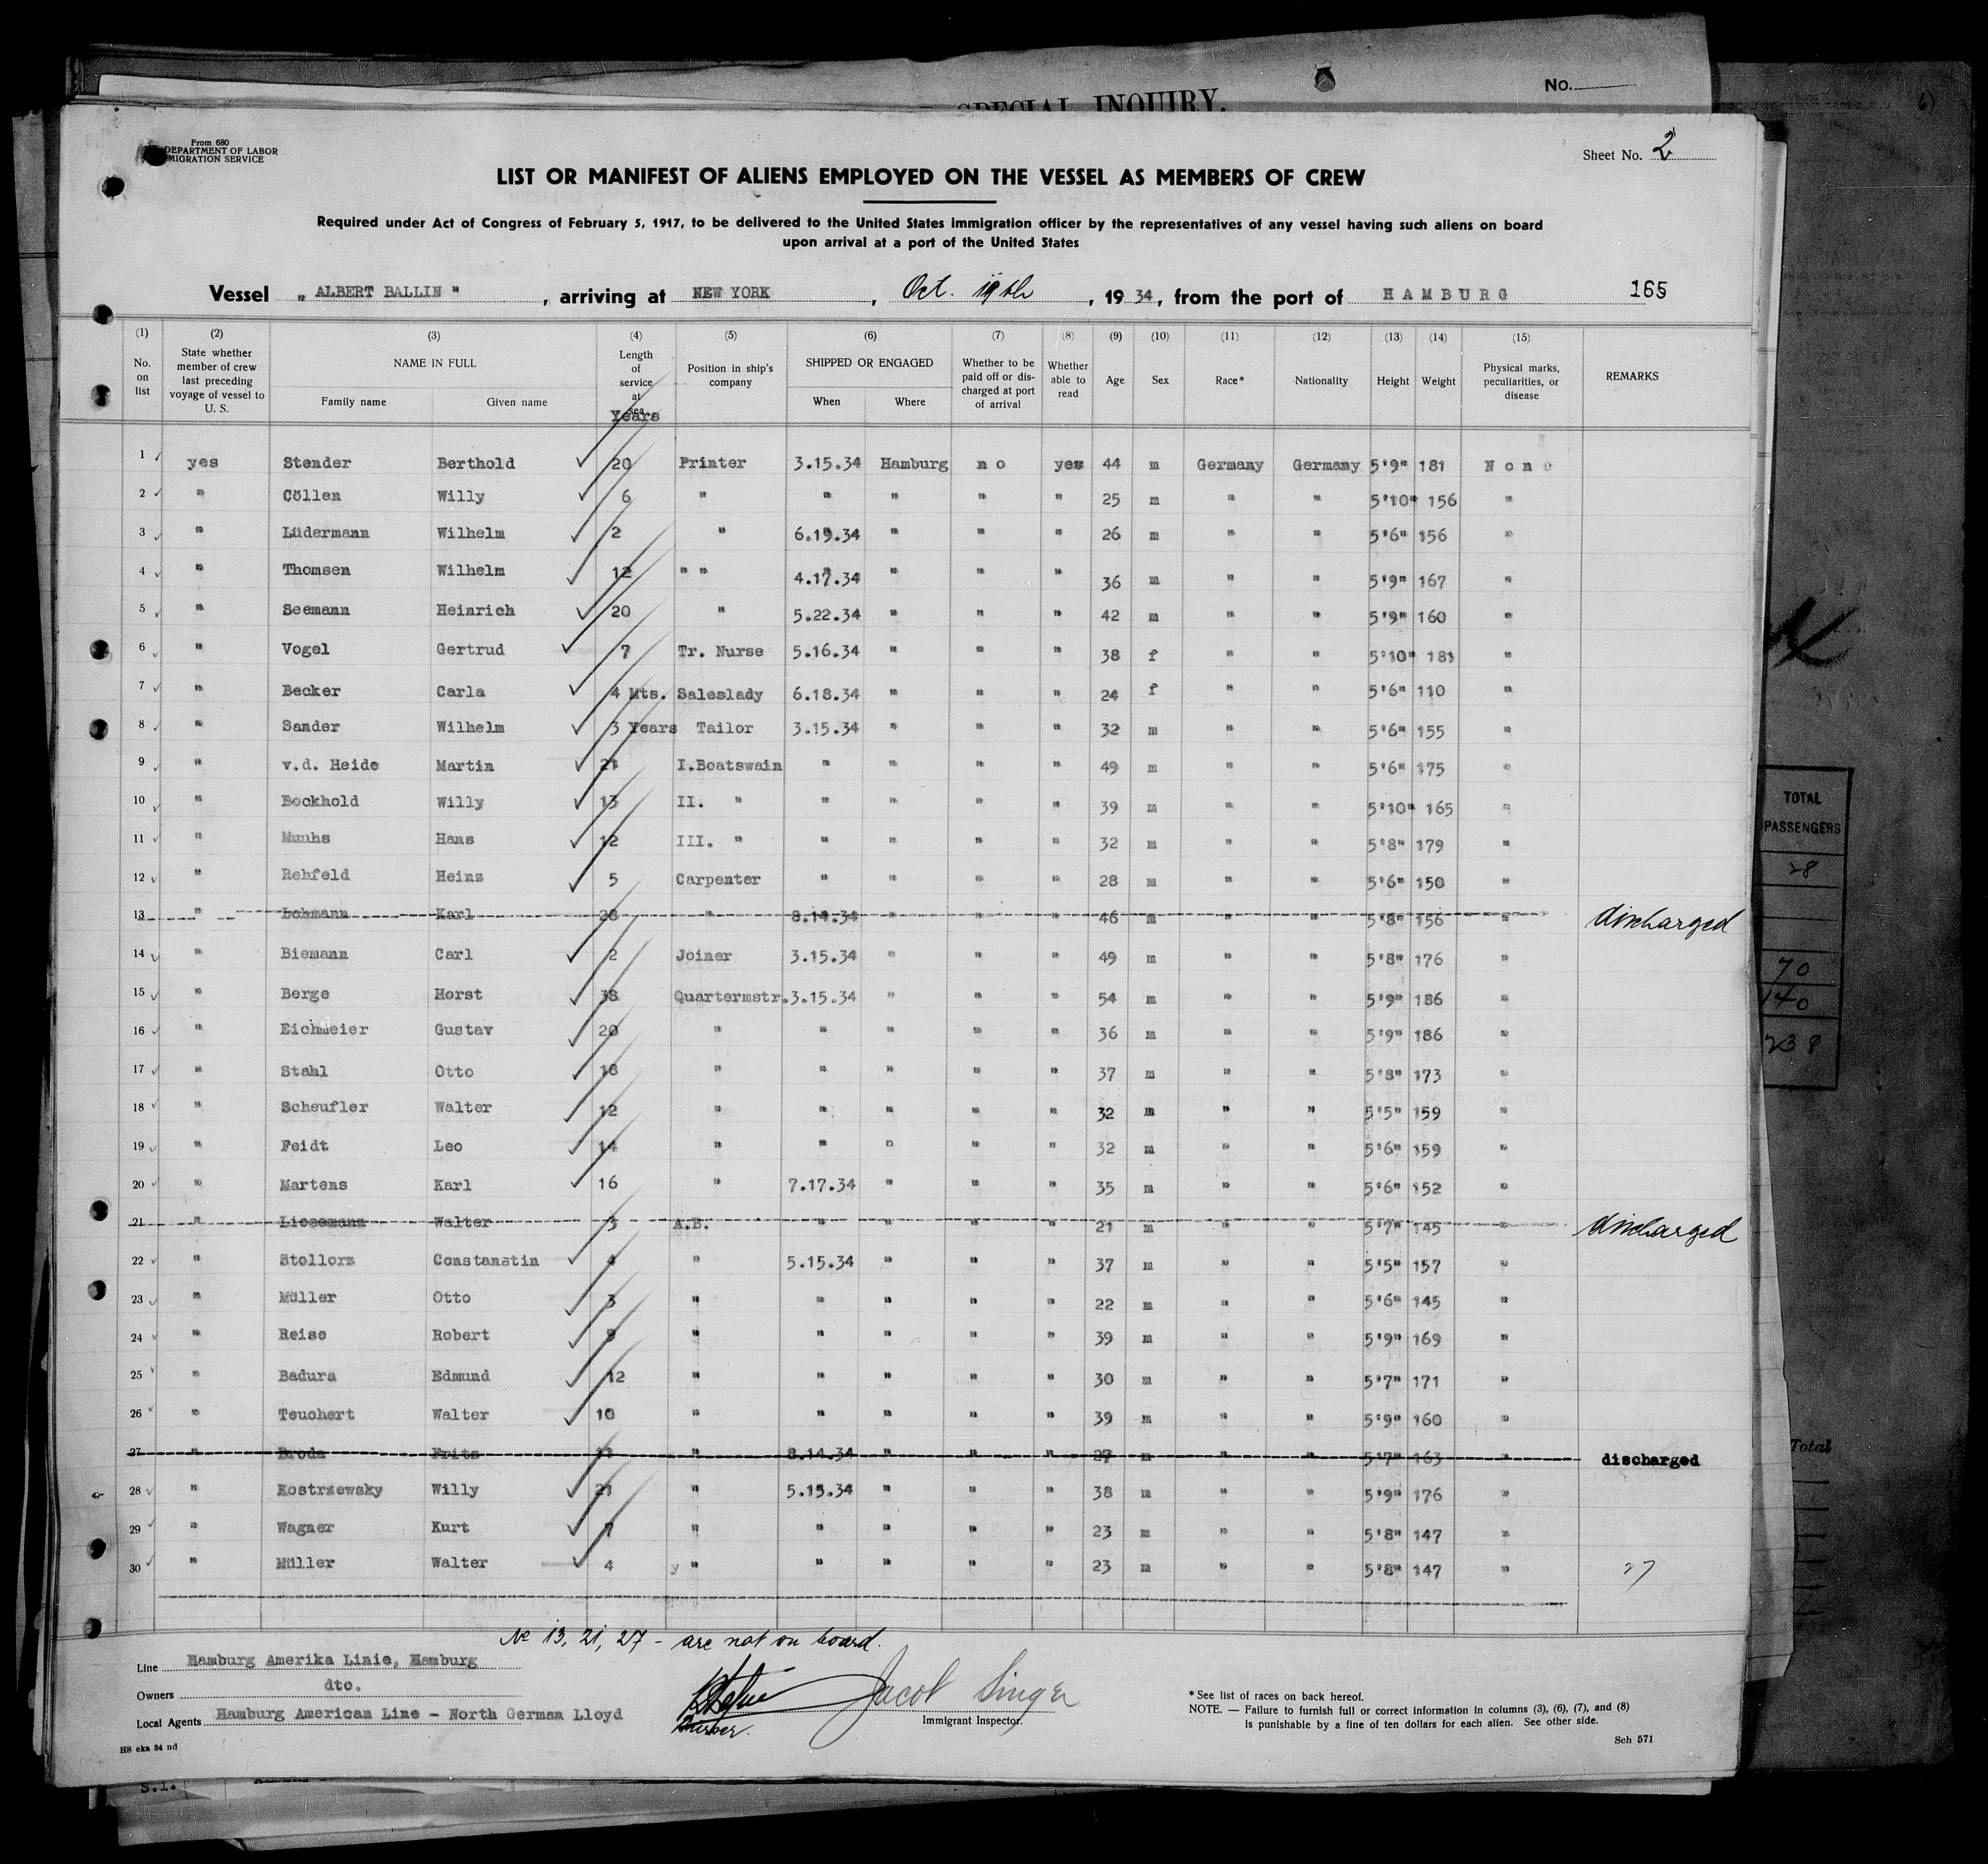 SPECIAL INQUIRY.
No.
From 680
DEPARTMENT OF LABOR
MIGRATION SERVICE
Sheet No. 2
LIST OR MANIFEST OF ALIENS EMPLOYED ON THE VESSEL AS MEMBERS OF CREW
Required under Act of Congress of February 5, 1917, to be delivered to the United States immigration officer by the representatives of any vessel having such aliens on board
upon arrival at a port of the United States
Vessel „ ALBERT BALLIN " , arriving at NEW YORK , Oct. 19th , 19 34, from the port of HAMBURG 165
(1) (2) (3) (4) (5) (6) (7) (8) (9) (10) (11) (12) (13) (14) (15)
No. on list State whether member of crew last preceding voyage of vessel to U. S. NAME IN FULL Family name Given name Length of service at sea Years Position in ship's company SHIPPED OR ENGAGED When Where Whether to be paid off or discharged at port of arrival Whether able to read Age Sex Race* Nationality Height Weight Physical marks, peculiarities, or disease REMARKS
1 yes Stender Berthold 20 Printer 3.15.34 Hamburg no yes 44 m Germany Germany 5'9" 181 None
2 " Cöllen Willy 6 " " " " " 25 m " " 5'10" 156 "
3 " Lüdermann Wilhelm 2 " 6.19.34 " " " 26 m " " 5'6" 156 "
4 " Thomsen Wilhelm 12 " " 4.17.34 " " " 36 m " " 5'9" 167 "
5 " Seemann Heinrich 20 " 5.22.34 " " " 42 m " " 5'9" 160 "
6 " Vogel Gertrud 7 Tr. Nurse 5.16.34 " " " 38 f " " 5'10" 181 "
7 " Becker Carla 4 Mts. Saleslady 6.18.34 " " " 24 f " " 5'6" 110 "
8 " Sander Wilhelm 3 Years Tailor 3.15.34 " " " 32 m " " 5'6" 155 "
9 " v.d. Heide Martin 21 I.Boatswain " " " " 49 m " " 5'6" 175 "
10 " Bockhold Willy 13 II. " " " " " 39 m " " 5'10" 165 "
11 " Muuhs Hans 12 III. " " " " " 32 m " " 5'8" 179 "
12 " Rehfeld Heinz 5 Carpenter " " " " 28 m " " 5'6" 150 "
13 " Lohmann Karl 28 " 8.14.34 " " " 46 m " " 5'8" 156 " discharged
14 " Biemann Carl 2 Joiner 3.15.34 " " " 49 m " " 5'8" 176 "
15 " Berge Horst 38 Quartermstr. 3.15.34 " " " 54 m " " 5'9" 186 "
16 " Eichmeier Gustav 20 " " " " " 36 m " " 5'9" 186 "
17 " Stahl Otto 18 " " " " " 37 m " " 5'8" 173 "
18 " Scheufler Walter 12 " " " " " 32 m " " 5'5" 159 "
19 " Feidt Leo 14 " " " " " 32 m " " 5'6" 159 "
20 " Martens Karl 16 " 7.17.34 " " " 35 m " " 5'6" 152 "
21 " Liesemann Walter 3 A.B. " " " " 21 m " " 5'7" 145 " discharged
22 " Stollorz Constanstin 4 " 5.15.34 " " " 37 m " " 5'5" 157 "
23 " Müller Otto 3 " " " " " 22 m " " 5'6" 145 "
24 " Reise Robert 9 " " " " " 39 m " " 5'9" 169 "
25 " Badura Edmund 12 " " " " " 30 m " " 5'7" 171 "
26 " Teuchert Walter 10 " " " " " 39 m " " 5'9" 160 "
27 " Broda Fritz 11 " 8.14.34 " " " 27 m " " 5'7" 163 " discharged
28 " Kostrzewsky Willy 21 " 5.15.34 " " " 38 m " " 5'9" 176 "
29 " Wagner Kurt 7 " " " " " 23 m " " 5'8" 147 "
30 " Müller Walter 4 y " " " " " 23 m " " 5'8" 147 " 27
No 13, 21, 27 - are not on board.
Line Hamburg Amerika Linie, Hamburg
Owners dto.
Local Agents Hamburg American Line - North German Lloyd
Jacob Singer
Purser.
Immigrant Inspector.
* See list of races on back hereof.
NOTE. — Failure to furnish full or correct information in columns (3), (6), (7), and (8)
is punishable by a fine of ten dollars for each alien. See other side.
H8 eka 34 nd
Sch 571
S.I.
TOTAL
PASSENGERS
28
70
140
238
Total